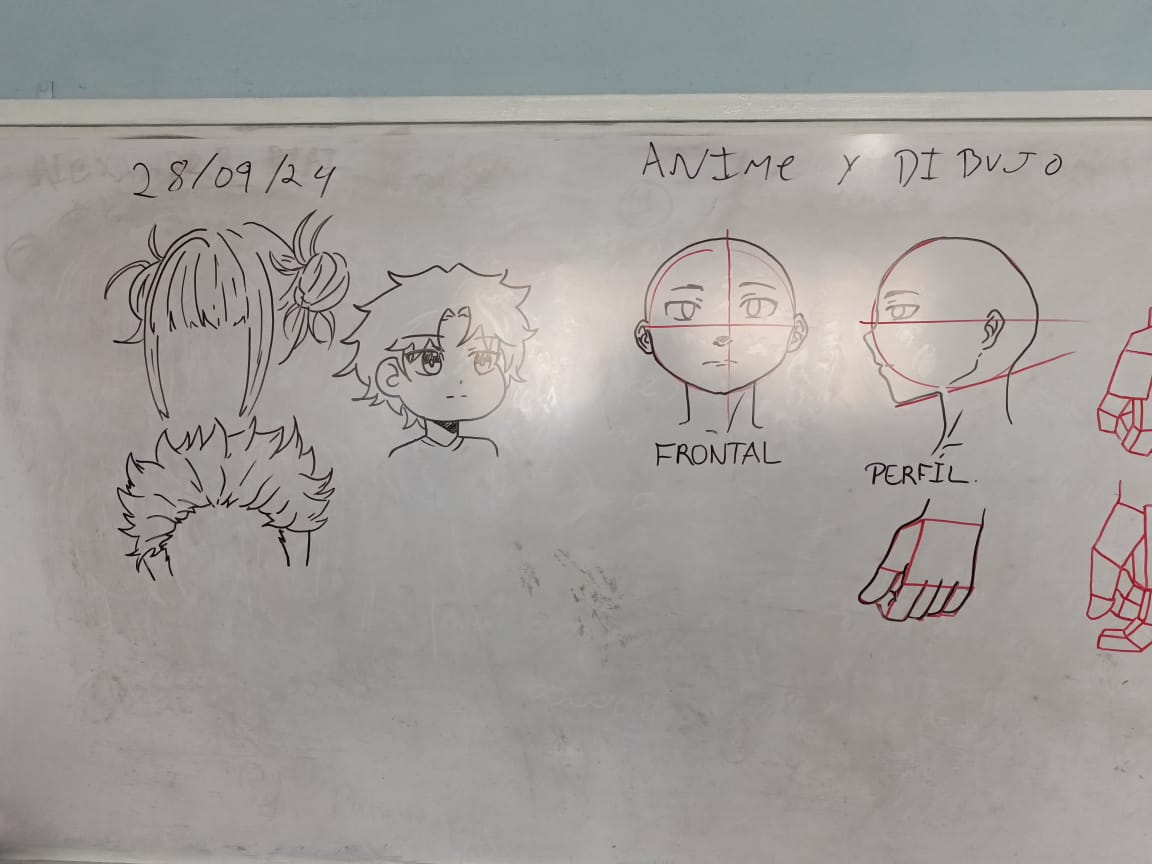 28/09/24
ANIMe Y DIBUJO
FRONTAL
PERFÍL.